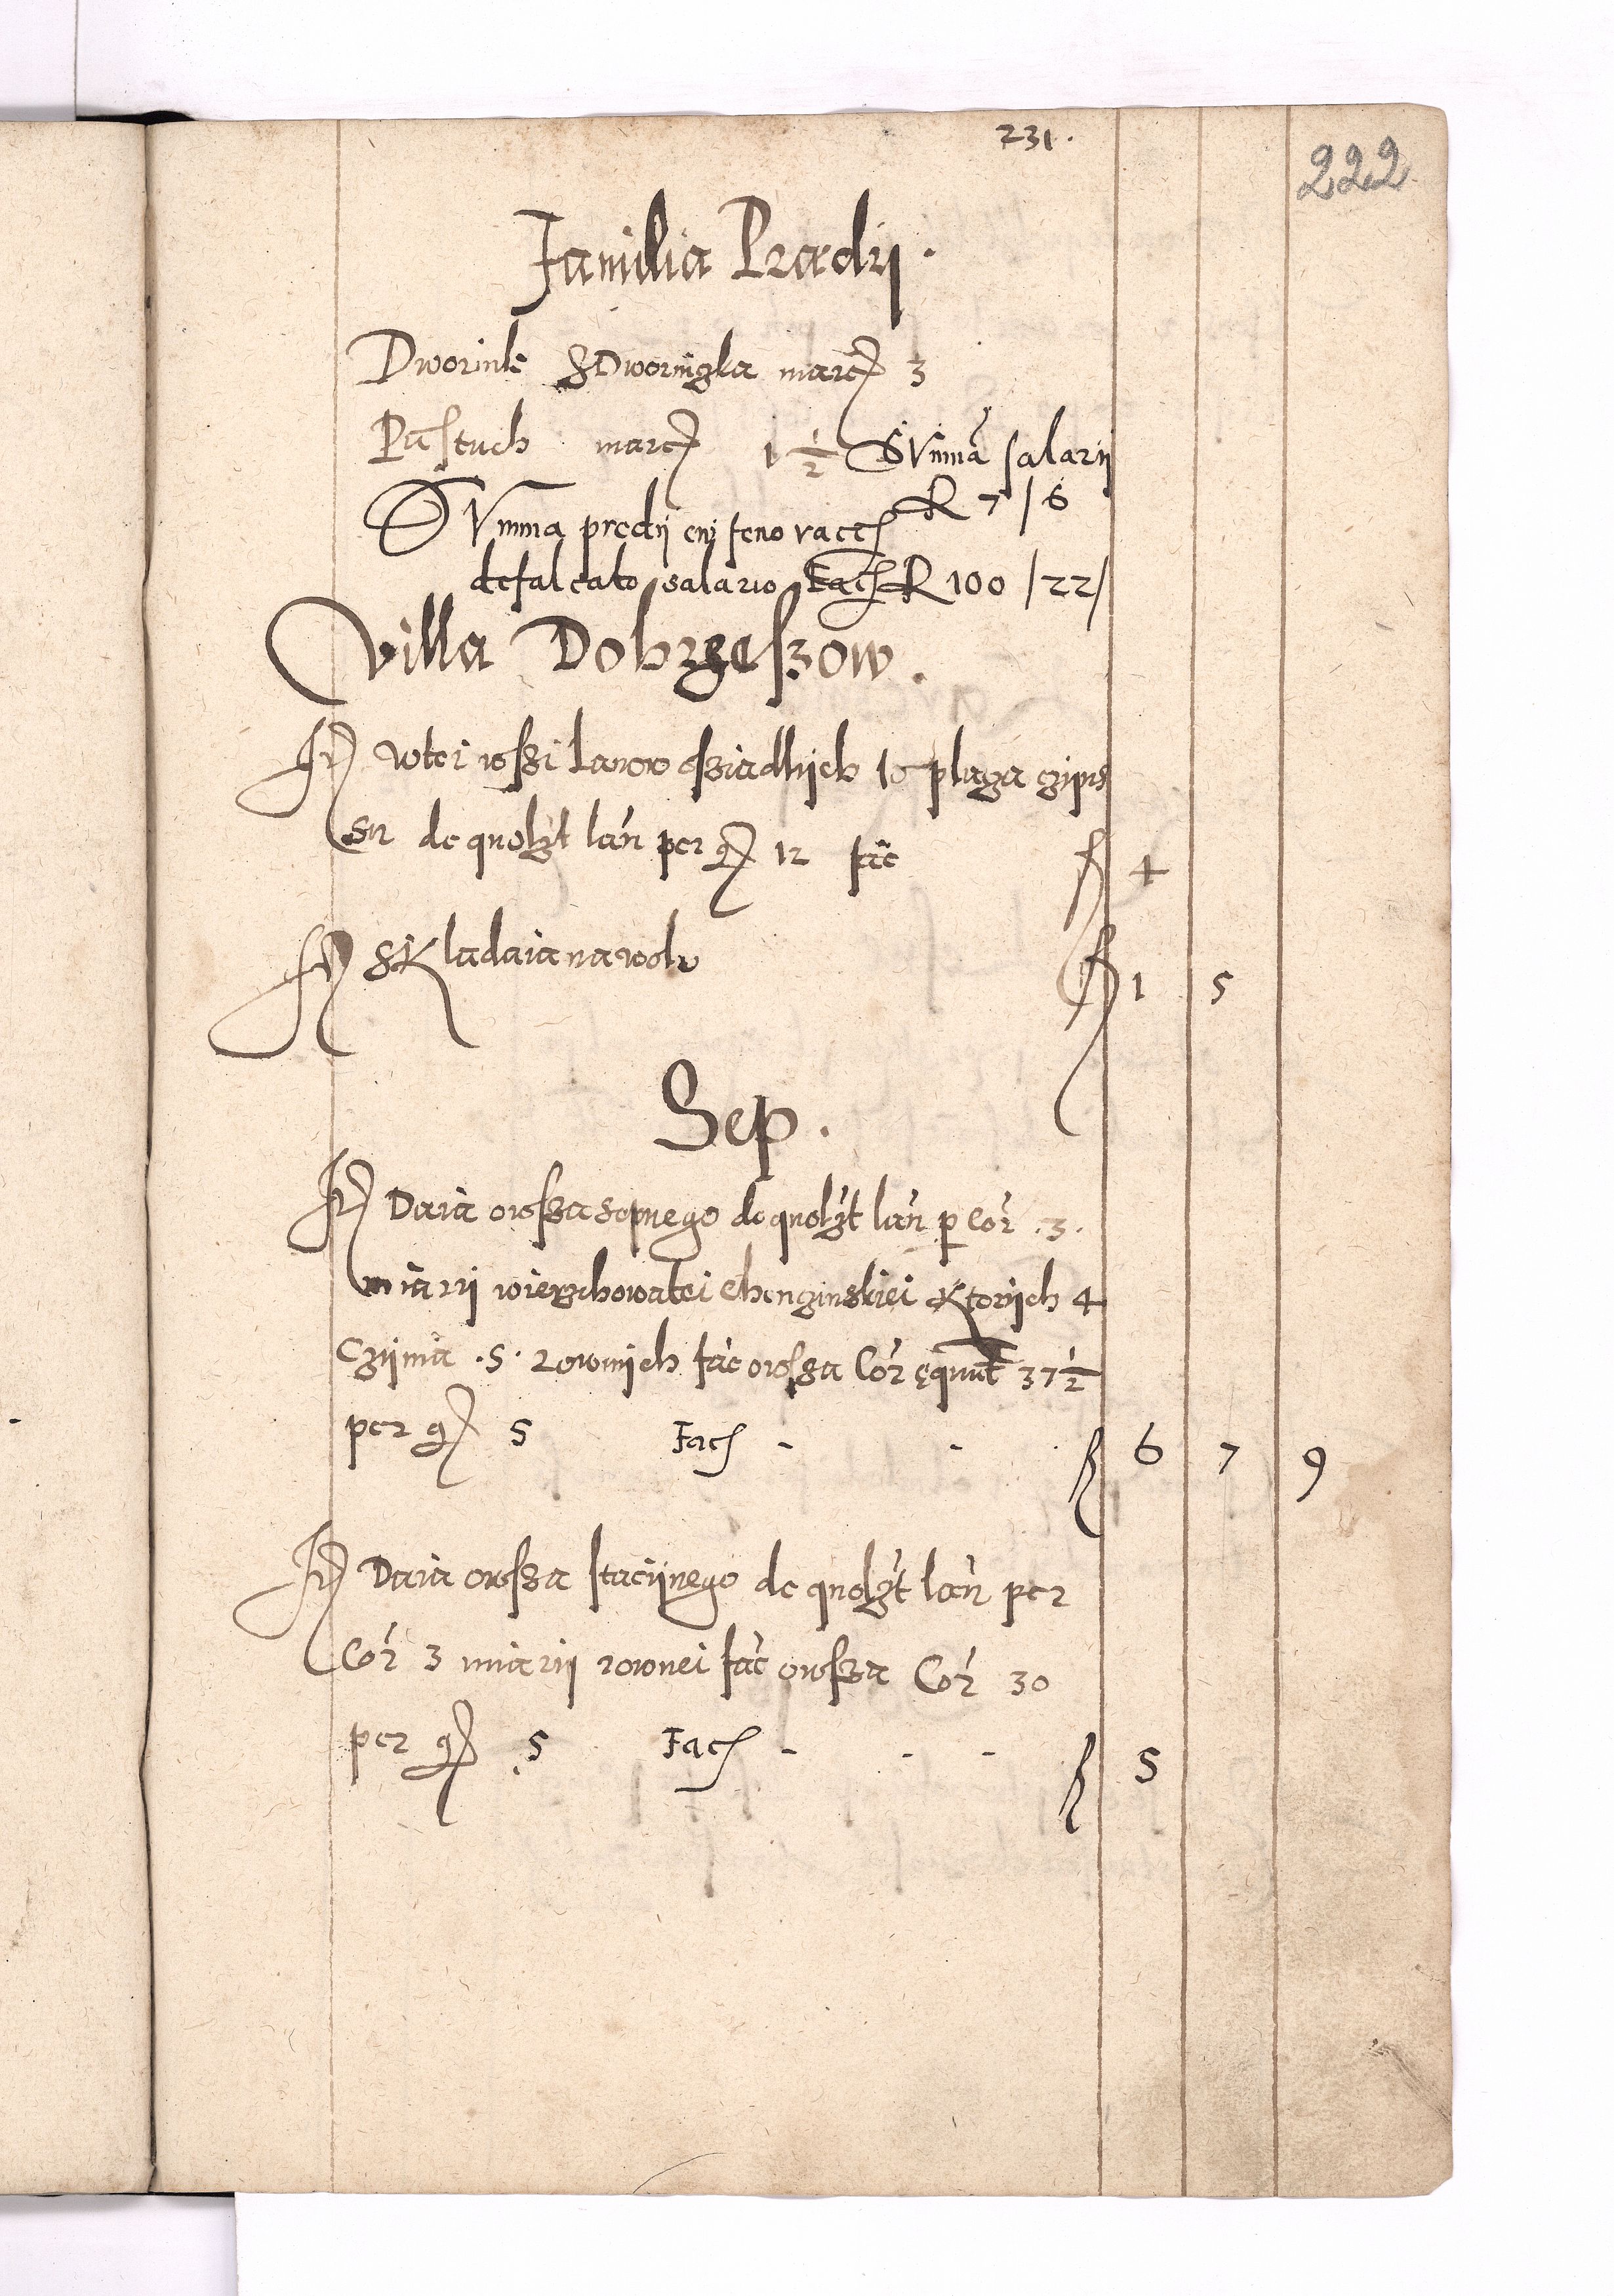 231.
222
Familia Prædij.
Dworink z Dworniczka marcę 3
Pastuch marcę 1 1/2 Summa salarij
R 7 / 6
Summa predij cum feno racce
defalcato salario facę R 100 / 22 /
Villa Dobrzeszow.
It wtei wszi Lanow osziadlijch 10 plaga czins
su de quolzt lan per g 12 fac f 4
It skladaia na wolu f 1 5
Sep.
It Daia owssa sepnego de quolzt lan per Cor .3.
miarij wierzchowatei chenginskiei Ktorijch 4
Czijnia .5. rownich fac owssa Cor equnt 37 1/2
per g 5 Fac - - f 6 7 9
It Daia owssa stacijnego de quolzt lan per
Cor 3 miarij rownei fac owssa Cor 30
per g 5 Fac - - - f 5